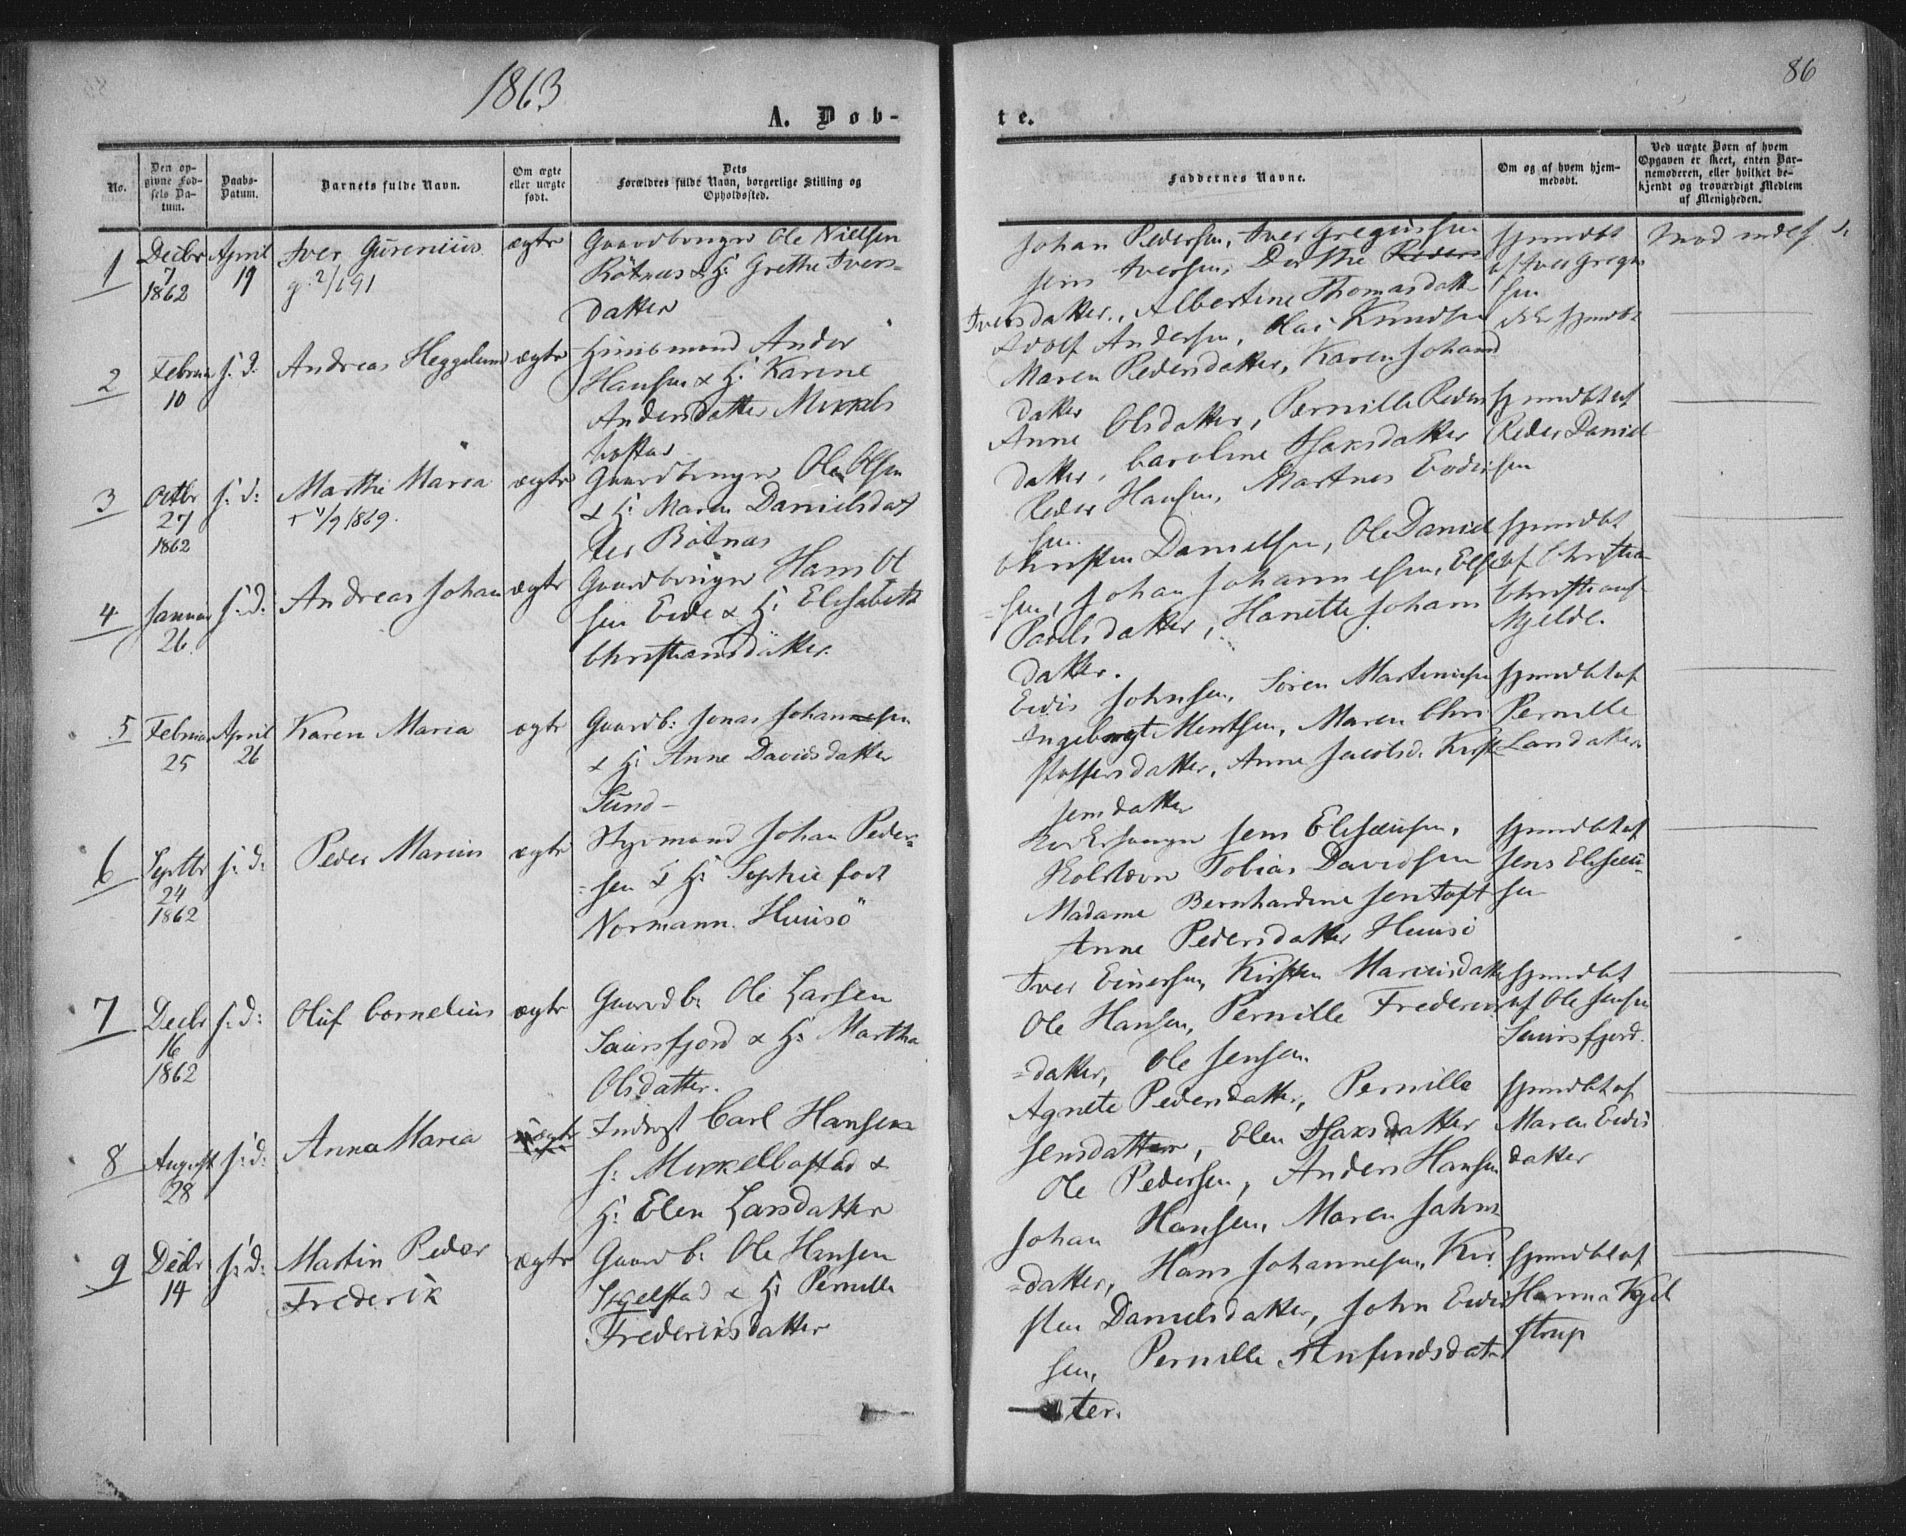 1863
86
A. Døb-
te.
No.
Den op-
givne Fød-
sels Da-
tum.
Daabs-
Datum.
Barnets fulde Navn.
Om ægte
eller uægte
født.
Dets
Forældres fulde Navn, borgerlige Stilling og
Opholdssted.
Faddernes Navne.
Om og af hvem hjem-
medøbt.
Ved uægte Børn af hvem
Opgaven er skeet, enten Bar-
nemoderen, eller hvilket be-
kjendt og troværdigt Medlem
af Menigheden.
1
Decbr
7
1862
April
19
Iver
ægte
Gaardbruger Ole Nielsen
Rötnes & H: Grethe Ivers-
datter
Johan Pedersen, Iver Gregussen
Jens Iversen, Dorthe
Iversdatter, Albertine Thomasdatt
hjemdbt
af Iver Gregus
sen
2
Februar
10
s: d:
Andreas Heggelund
ægte
Huusmand Ander
Hansen & H: Karine
Andersdatter Mikkels
bostad
Adolf Andersen, Olai Knudsen
Maren Pedersdatter, Karen Johans
datter
ikke hjemdbt
3
Octbr
27
1862
s: d:
Marthe Maria
+ 1/9 1869.
ægte
Gaardbruger Ole Olsen
& H: Maren Danielsdat
ter Rötnes
Anne Olsdatter, Pernille Peders
datter, Caroline Isaksdatter
Peder Hansen, Martnes Evder
sen
hjemdbt af
Peder Daniel
sen
4
Januar
26.
s: d:
Andreas Johan
ægte
Gaardbruger Hans Ol
sen Eide & H: Elisabeth
Christiansdatter.
Christen Danielsen, Ole Daniel
-sen, Johan Johannesen, Else
Paulsdatter, Hanette Johans
datter.
hjemdbt
af Christian
Christians-
Kjelde.
5
Februar
25
April
26
Karen Maria
ægte
Gaardb: Jonas Johannesen
& H: Anne Davidsdatter
Sund-
Evdis Johnsen, Sören Martinusen
Ingeborgt Mentsen, Maren Chri
stoffersdatter, Anne Jacobsd.
Jensdatter
hjemdbt af
Pernille
Larsdatter
6
Septbr
24
1862
s: d:
Peder Marius
ægte
Styrmand Johan Peder-
-sen & H: Sophie født
Normann. Huusö
Kirkesanger Jens Elisæusen,
Tobias Davidsen
Madame Bernhardine Jentoft
Anne Pedersdatter Huusö
hjemdbt af
Jens Elisæu-
sen
7
Decbr
16
1862
s: d:
Oluf Cornelius
ægte
Gaardb: Ole Larsen
Laursfjord & H: Martha
Olsdatter.
Iver Einersen, Kirsten Mariusdatt
Ole Hansen, Pernille Frederiks
-datter, Ole Jensen
hjemdbt
af Ole Jensen
Laursfjord.
8
August
28
s: d:
Anna Maria
Inderst Carl Hansen
s: Mikkelbostad &
H: Elen Larsdatter
Agnete Pedersdatter, Pernille
Jensdatter, Elen Isaksdatter
Ole Pedersen, Anders Hansen
Johan Hansen, Maren Johns
-datter,
hjemdbt af
Maren Evdis
datter
9
Decbr
14
s: d:
Martin Peder
Frederik
ægte
Gaardb: Ole Hansen
& H: Pernille
Frederiksdatter
Hans Johannesen, Kir
sten Danielsdatter, John Evdis
sen, Pernille Anfindsdat-
ter.
hjemdbt af
Hanna Kjel
strup